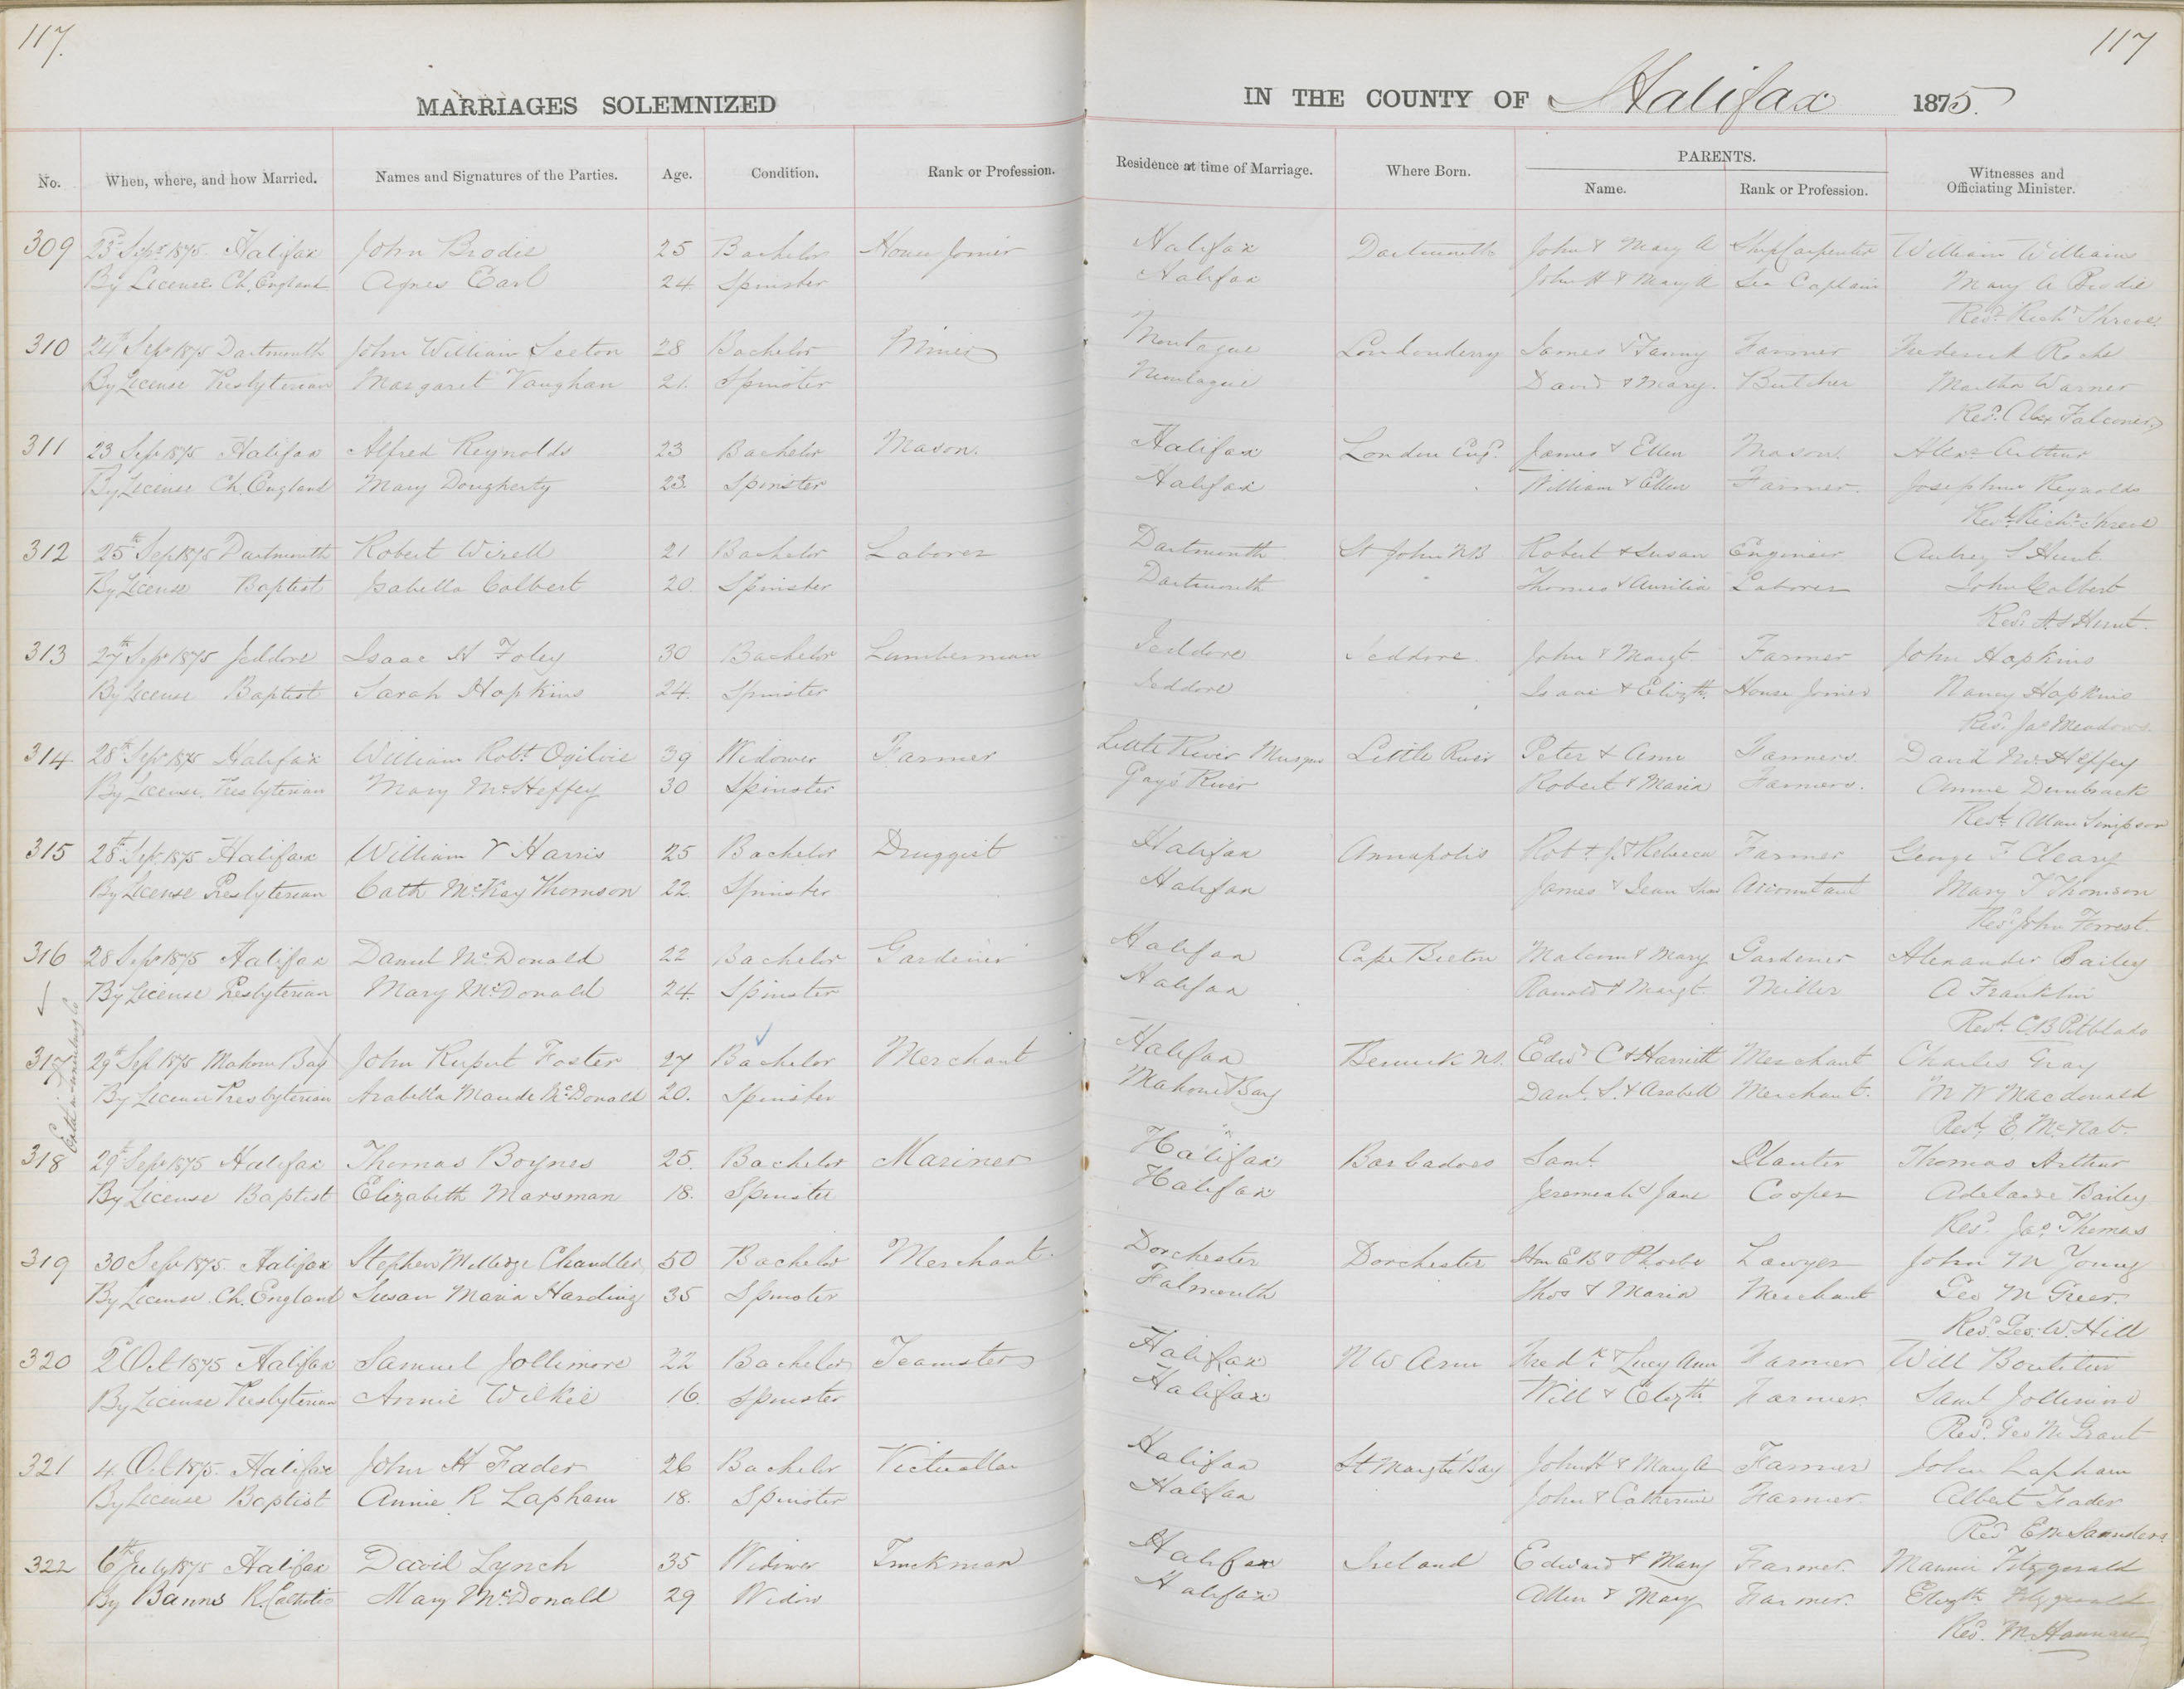 117.
117
MARRIAGES SOLEMNIZED
IN THE COUNTY OF Halifax 1875.
No. When, where, and how Married. Names and Signatures of the Parties. Age. Condition. Rank or Profession. Residence at time of Marriage. Where Born. PARENTS. Name. Rank or Profession. Witnesses and Officiating Minister.
309 23d Sept 1875 Halifax John Brodie 25 Bachelor House Joiner Halifax Dartmouth John & Mary A Ship Carpenter William Williams
By License Ch. England Agnes Earl 24 Spinster Halifax John H & Mary A Sea Captain Mary A Brodie
Revd. Richd Shreve
310 24th Sep 1875 Dartmouth John William Seeton 28 Bachelor Miner Montague Londonderry James & Fanny Farmer Frederick Roche
By License Presbyterian Margaret Vaughan 21. Spinster Montague David & Mary. Butcher Martha Warner
Revd. Alex Falconer
311 23 Sep 1875 Halifax Alfred Reynolds 23 Bachelor Mason. Halifax London Eng. James & Ellen Mason. Alexr Arthur
By License Ch. England Mary Dougherty 23. Spinster Halifax William & Ellen Farmer. Josephine Reynolds
Revd. Richd Shreve
312 25th Sep 1875 Dartmouth Robert Wisell 21 Bachelor Laborer Dartmouth St John NB Robert & Susan Engineer Autrey S Hunt.
By License Baptist Isabella Colbert 20. Spinster Dartmouth Thomas & Aurilia Laborer John Colbert
Revd A S Hunt.
313 27th Sep 1875 Jeddore Isaac H Foley 30 Bachelor Lumberman Jeddore Jeddore. John & Margt. Farmer John Hopkins
By License Baptist Sarah Hopkins 24. Spinster Jeddore Isaac & Elizth. House Joiner Nancy Hopkins
Revd. Jas Meadows
314 28th Sep 1875 Halifax William Robt Ogilvie 39 Widower Farmer Little River Musquo Little River Peter & Ann Farmers. David McHeffey
By License. Presbyterian Mary McHeffey 30 Spinster Gays River Robert & Maria Farmers. Annie Dunbrack
Revd. Allan Simpson
315 28th Sep. 1875 Halifax William V Harris 25 Bachelor Druggist Halifax Annapolis Robt J. & Rebecca Farmer George F Cleary
By License Presbyterian Cath McKay Thomson 22. Spinster Halifax James & Jean Accountant Mary T Thomson
Revd John Forrest.
316 28 Sep 1875 Halifax Daniel McDonald 22 Bachelor Gardener Halifax Cape Breton Malcom & Mary Gardener Alexander Bailey
By License Presbyterian Mary McDonald 24. Spinster Halifax Ranold & Margt. Miller A Franklin
Revd. C B Pitblado
317 29th Sep 1875 Mahone Bay John Rupert Foster 27 Bachelor Merchant Halifax Berwick NS. Edwd C & Harriett Merchant Charles Gray
By License Presbyterian Arabella Maude McDonald 20. Spinster Mahone Bay Danl. S. & Arabella Merchant. M W Macdonald
Revd. E. McNab.
318 29th Sep 1875 Halifax Thomas Boynes 25. Bachelor Mariner Halifax Barbadoes Saml. Planter Thomas Arthur
By License Baptist Elizabeth Marsman 18. Spinster Halifax Jeremiah & Jane Cooper Adelaide Bailey
Revd. Jas. Thomas
319 30 Sep 1875. Halifax Stephen Milledge Chandler 50 Bachelor Merchant. Dorchester Dorchester Hon E B & Phoebe Lawyer John M Young
By License. Ch. England Susan Maria Harding 35 Spinster Falmouth Thos & Maria Merchant Geo M Greer.
Revd. Geo. W. Hill
320 2d Oct 1875 Halifax Samuel Jollimore 22 Bachelor Teamster Halifax N W Arm Fredk. & Lucy Ann Farmer Will Boutilier
By License Presbyterian Annie Wilkie 16. Spinster Halifax Will & Elizth. Farmer. Saml Jollimore
Revd. Geo M Grant
321 4. Oct 1875. Halifax John H Fader 26 Bachelor Victualler Halifax St Margts Bay John H & Mary A Farmer John Lapham
By License Baptist Annie R Lapham 18. Spinster Halifax John & Catherine Farmer. Albert Fader
Revd E M Saunders
322 6th July 1875 Halifax David Lynch 35 Widower Truckman Halifax Ireland Edward & Mary Farmer. Mannie Fitzgerald
By Banns R. Catholic Mary McDonald 29 Widow Halifax Allen & Mary Farmer. Elizth Fitzgerald
Revd. M. Hannan